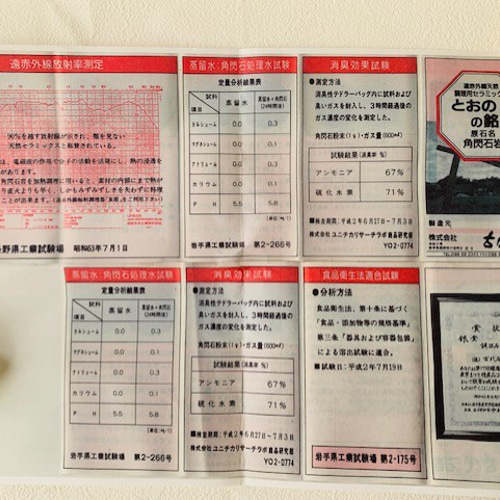 遠赤外線放射率測定
90%を越す放射線が示され、類を見ない
天然セラミックスと称賛されている。
は、電磁波の作用で分子の活動を活発にし、熱の浸透を
角閃石を加熱調理に用いると、素材の内部にまで熱が
り速火よりも早く、しかもみずみずしさを失わずに料理
ことが出来ます。
長野県工業試験場 昭和63年7月1日
蒸留水:角閃石処理水試験
定量分析結果表
試料
項目
蒸留水
蒸留水+角閃石
(24時間後)
カルシューム 0.0 0.3
マグネシューム 0.0 0.1
ナトリューム 0.0 0.3
カリウム 0.0 0.1
P H 5.5 5.8
(単位:mg/ℓ)
岩手県工業試験場 第2-266号
消臭効果試験
●測定方法
消臭性テドラーバッグ内に試料および
臭いガスを封入し、3時間経過後の
ガス濃度の変化を測定した。
角閃石粉末(1g)・ガス量(600mℓ)
試験結果(消臭率 %)
アンモニア 67%
硫化水素 71%
■検査期間:平成2年6月27日〜7月3日
株式会社ユニチカリサーチラボ商品研究部
YO2-0774
遠赤外線天然
調理用セラミック
とおの
の銘
原石名
角閃石岩
製造元
株式会社
蒸留水:角閃石処理水試験
定量分析結果表
試料
項目
蒸留水
蒸留水+角閃石
(24時間後)
カルシューム 0.0 0.3
マグネシューム 0.0 0.1
ナトリューム 0.0 0.3
カリウム 0.0 0.1
P H 5.5 5.8
(単位:mg/ℓ)
岩手県工業試験場 第2-266号
消臭効果試験
●測定方法
消臭性テドラーバッグ内に試料および
臭いガスを封入し、3時間経過後の
ガス濃度の変化を測定した。
角閃石粉末(1g)・ガス量(600mℓ)
試験結果(消臭率 %)
アンモニア 67%
硫化水素 71%
■検査期間:平成2年6月27日〜7月3日
株式会社ユニチカリサーチラボ商品研究部
YO2-0774
食品衛生法適合試験
●分析方法
食品衛生法、第十条に基づく
「食品・添加物等の規格基準」
第三条「器具および容器包装」
による溶出試験に適合。
■試験日:平成2年7月19日
岩手県工業試験場 第2-175号
賞状